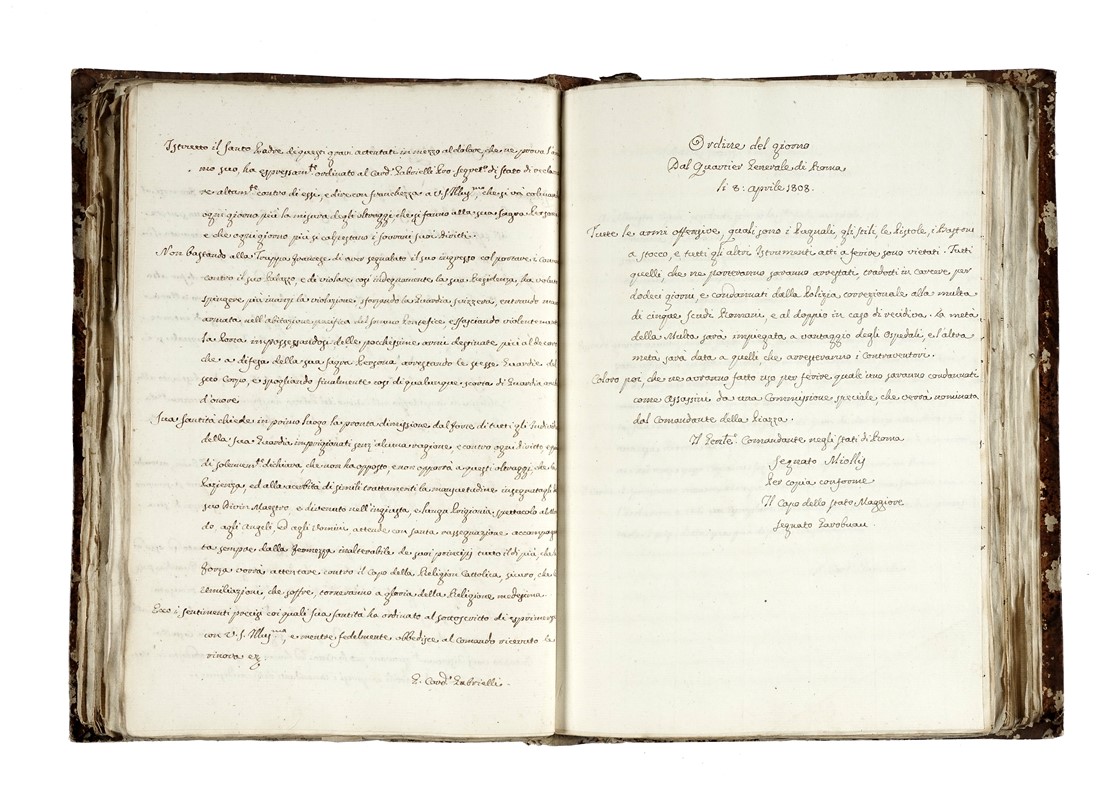 Istrutto il Santo Padre di questi gravi attentati in mezzo al dolore, che ne prova l'ani
mo suo, ha espressam.te ordinato al Card. Gabrielli Pro Segret.o di Stato di recla
re altam.te contro di essi, e dire con franchezza a V.S. Illus.ma, che si va colmando
ogni giorno più la misura degli oltraggi, che si fanno alla sua Sagra Persona
e che ogni giorno più si calpestano i sovrani suoi diritti.
Non bastando alla Truppa francese di aver segnalato il suo ingresso col portare i Cann
contro il suo Palazzo, e di violare così indegnamente la sua Residenza, ha volu
spingere più innanzi la violazione, sforzando la Guardia svizzera, entrando ma
armata nell'abitazione pacifica del sommo Pontefice, e sfasciando violentemen
la Porta impossessandosi delle pochissime armi destinate, più al decoro
che a difesa della sua sagra Persona, arrestando le stesse Guardie del
suo Corpo, e spogliandolo finalmente così di qualunque scorta di Guardia, an
d'onore.
Sua Santità chiede in primo luogo la pronta dimissione dal forte di tutti gl'Individ
della sua Guardia imprigionati senz'alcuna ragione, e contro ogni diritto, e
di solennem.te dichiara che non ha opposto, e non opporrà a questi oltraggi, che la
Pazienza, ed alla acerbità di simili trattamenti la mansuetudine insegnatagli
suo Divin Maestro, e detenuto nell'ingiusta, e lunga Prigionia, spettacolo al Mon
do, agli Angeli, ed agli Uomini, attende con santa rassegnazione accompagn
ta sempre dalla fermezza inalterabile de suoi principj tutto il di più, che la
forza vorrà attentare contro il Capo della Religion Cattolica, sicuro, che le
umiliazioni, che soffre, torneranno a gloria della Religione medesima.
Ecco i sentimenti precisi coi quali Sua Santità ha ordinato al sottoscritto di esprimersi
con V.S. Illus.ma, e mentre fedelmente obbedisce al comando ricevuto la
rinova ec
Card. Gabrielli.
Ordine del giorno
Dal Quartier Generale di Roma
li 8: Aprile 1808.
Tutte le armi offensive, quali sono i Pugnali, gli stili, le Pistole, i Bastoni
a stocco, e tutti gli altri Istrumenti atti a ferire sono vietati. Tutti
quelli, che ne porteranno saranno arrestati, tradoti in carcere, per
dodeci giorni, e condannati dalla Polizia correzionale alla multa
di cinque Scudi Romani, e al doppio in caso di recidiva. La metà
della Multa sarà impiegata a vantaggio degli Ospedali, e l'altra
metà sarà data a quelli che arresteranno i Contraventori.
Coloro poi, che ne avranno fatto uso per ferire qualc'uno saranno condannati
come Assassini da una Commissione speciale, che verrà nominata
dal Comandante della Piazza.
Il Genle. Comandante negli Stati di Roma
Segnato Miollis
Per copia conforme
Il Capo dello Stato Maggiore
Segnato